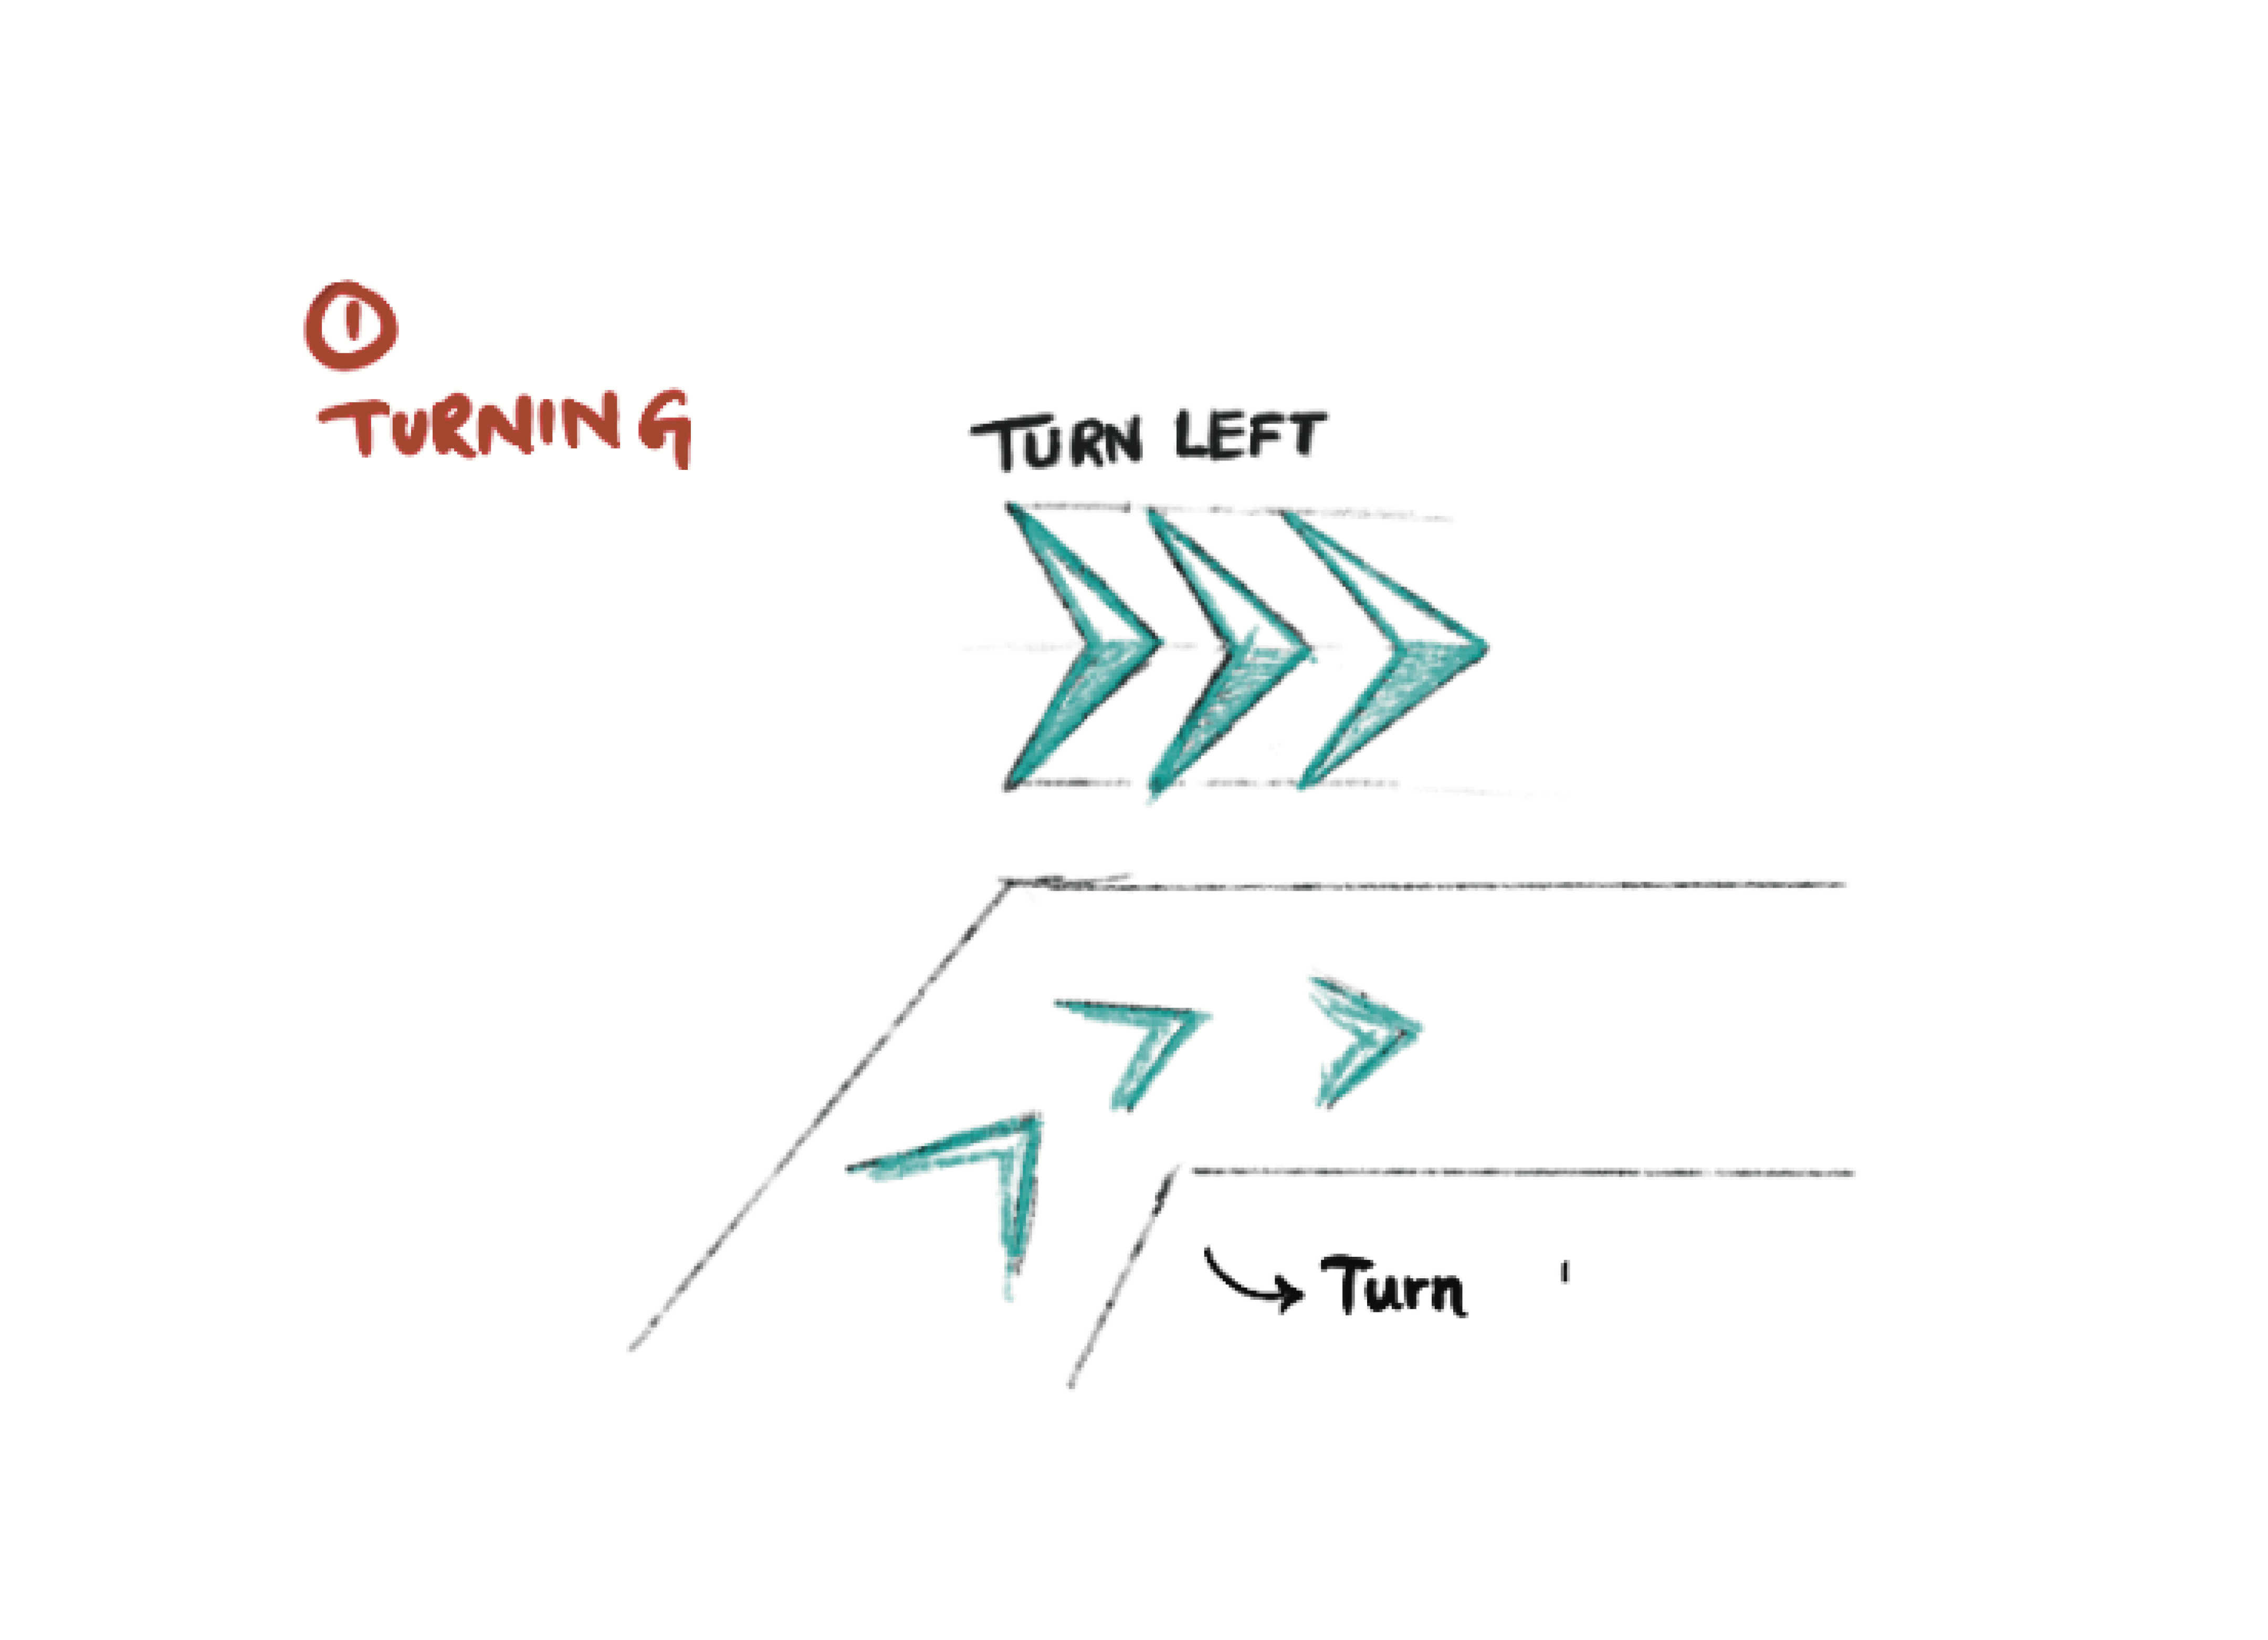 1
TURNING
TURN LEFT
Turn